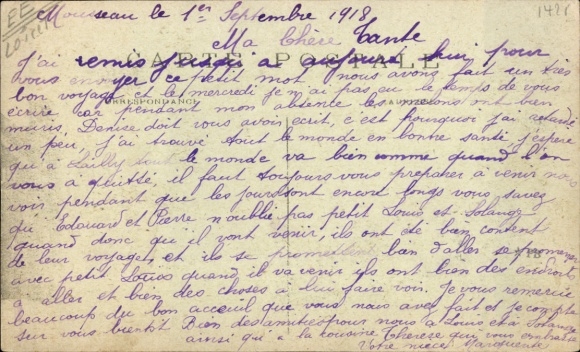 Mousseau le 1er Septembre 1918
1421
EE Loiret
Ma Chère Tante
CARTE POSTALE
J'ai remis jusqu'à aujourd'hui pour
vous envoyer ce petit mot nous avons fait un très
bon voyage et le mercredi je n'ai pas eu le temps de vous
CORRESPONDANCE
écrire car pendant mon absence les melons ont bien
muris, Denise doit vous avoir écrit, c'est pourquoi j'ai retardé
un peu, j'ai trouvé tout le monde en bonne santé j'espère
qu'à Lailly tout le monde va bien comme quand l'on
vous à quitté, il faut toujours vous préparer à venir nous
voir pendant que les jours sont encore longs vous savez
qu'Edouard et Pierre n'oublie pas petit Louis et Solange
quand donc qu'il vont venir, ils ont été bien content
de leur voyage, et ils se promettent bien d'aller se promener
avec petit Louis quand il va venir ils ont bien des endroits
à aller et bien des choses à lui faire voir. Je vous remercie
beaucoup du bon acceuil que vous nous avez fait et je compte
sur vous bientôt Bien des amitiés pour nous à Louis et à Solange
ainsi qu'à la cousine Thérèse qui vous
Votre nièce Marguerite